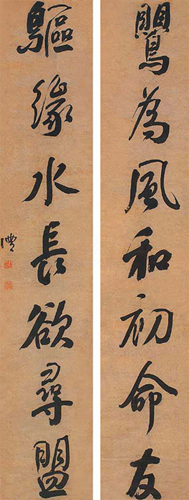 鸎為風和初命友
鷗緣水長欲尋盟